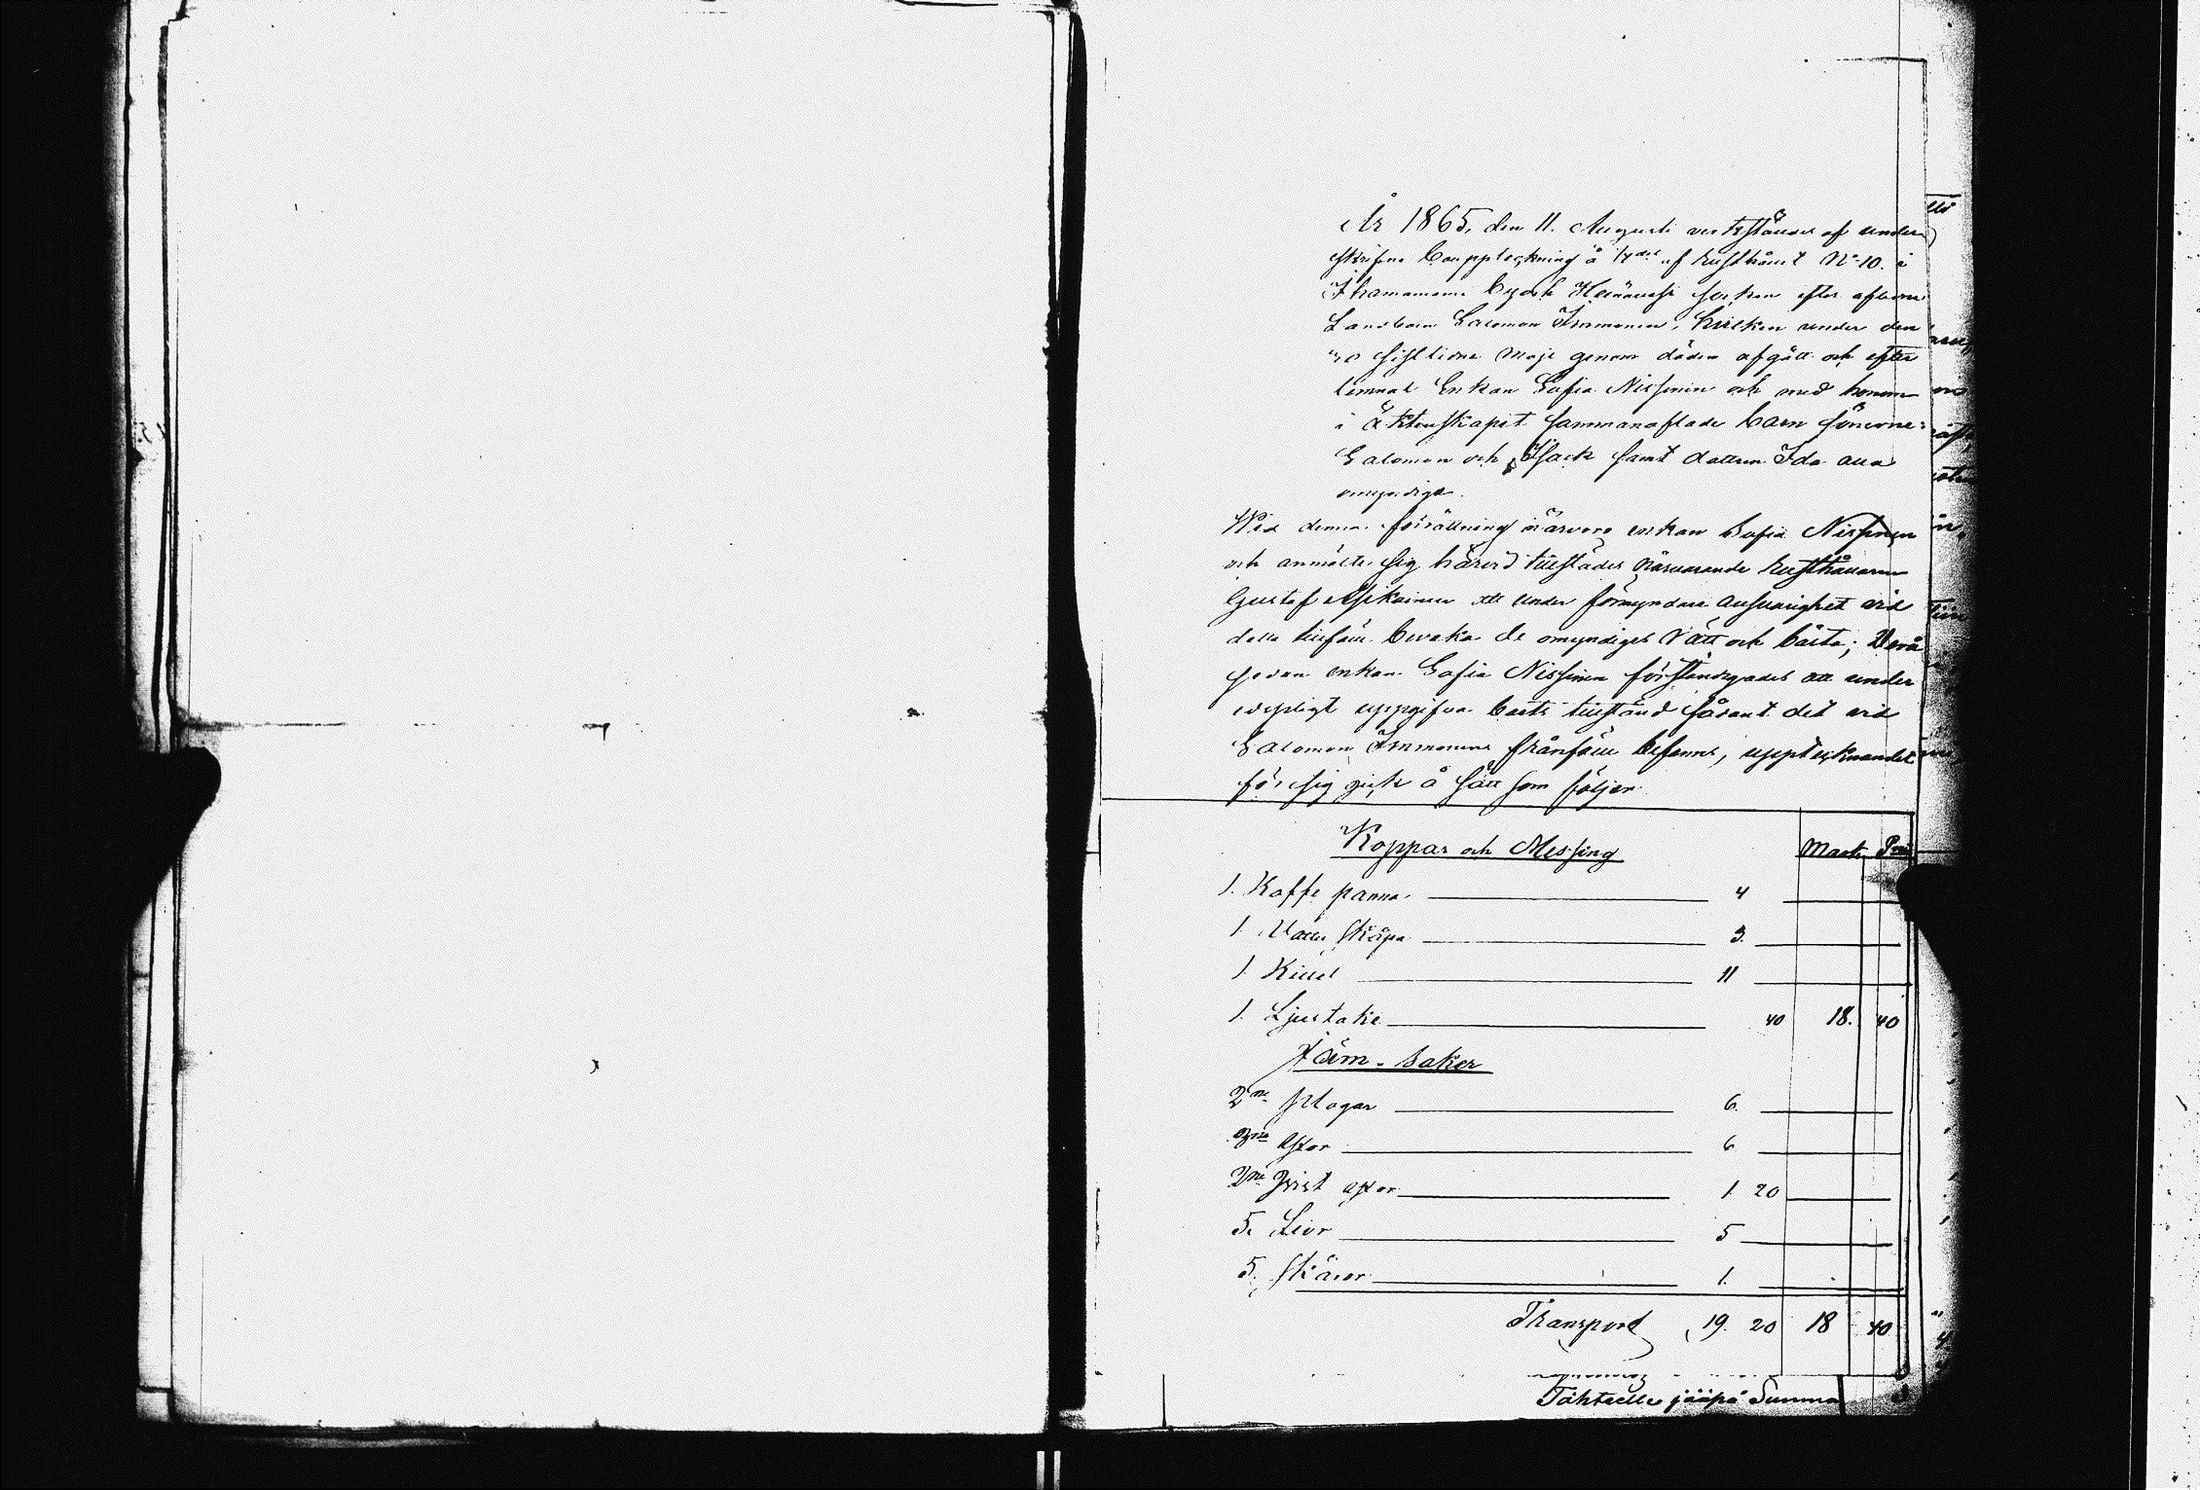 År 1865, den 11. Augusti verkställdes af under
skrifne bouppteckning å 1/4del af rusthållet No 10. i
Ihamaniemi by och Heinävesi socken efter aflidne
Landbon Salomon Immonen, hvilken under den
30 sistlidne Maji genom döden afgått och efter
lemnat Enkan Sofia Nissinen och med honom
i äktenskapet sammanaflade barn sönerne:
Salomon och Isack samt dottren Ida alla
omyndige.
Wid denna förrättning närvore enkan Sofia Nissinen
och anmälte sig härvid tillstädes närvarande Rusthållaren
Gustaf att under förmyndare ansvarighet vid
detta tillfälle bevaka de omyndiges rätt och bästa; Derå
sedan enkan Sofia Nissinen förständigades att under
edspligt uppgifva boets tillstånd sådant det vid
Salomon Immonens frånfälle befanns, upptecknandet
för sig gick å sätt som följer
Koppar och Messing Mark Pni
1. Kaffe panna 4
1 Vatten skåpa 3.
1. Kittel 11
1. Ljustake 40 18. 40
Järn-saker
2ne plogar 6.
3ne Yxor 6
2ne Qvist yxor 1. 20
5. Liar 5
5. skäror 1.
Transport 19. 20 18 40
Tähteelle jääpä Summa